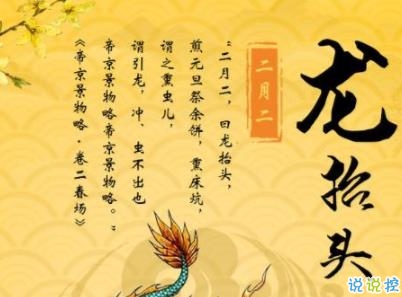 龙抬头
二月二
“二月二，曰龙抬头，
煎元旦祭余饼，熏床炕，
谓之熏虫儿，
谓引龙，冲、虫不出也
帝京景物略帝京景物略。”
《帝京景物略·卷二春场》
说说控